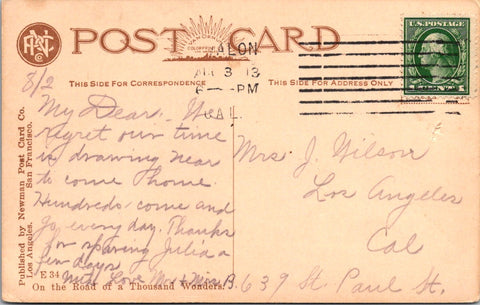 POST CARD
THIS SIDE FOR CORRESPONDENCE
THIS SIDE FOR ADDRESS ONLY
U.S. POSTAGE
1 CENT 1
ALON
3 13
6 - PM
CAL.
8/2
My Dear. We
regret our time
is drawing near
to come home.
Hundreds come and
go every day. Thanks
for sparing Julia a
few days
with Love Mr & Mrs B.
Mrs J. Wilson
Los Angeles
Cal
639 St. Paul St.
Published by Newman Post Card Co.
Los Angeles. San Francisco.
E 34
On the Road of a Thousand Wonders.